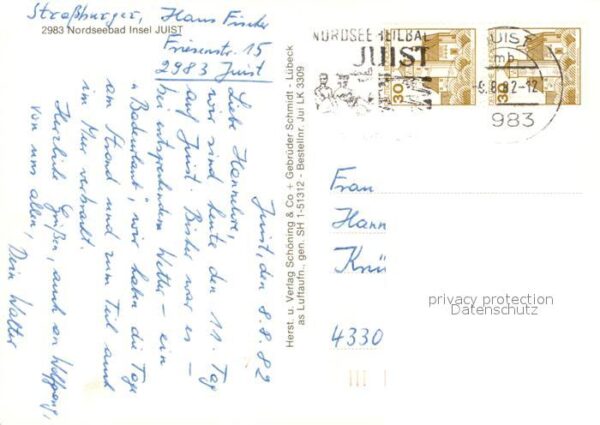 Straßburger, Hans Fischer
2983 Nordseebad Insel JUIST
Friesenstr. 15
2983 Juist
Juist, den 8.8.82
Liebe Hannelore,
wir sind heute den 11. Tag
auf Juist. Bisher war es -
bei entsprechendem Wetter - ein
"Badeurlaub", wir haben die Tage
am Strand und zum Teil auch
im Meer verbracht.
Herzliche Grüßen, auch an Wolfgang,
von uns allen,
Dein Walter
Herst. u. Verlag Schöning & Co + Gebrüder Schmidt - Lübeck
as Luftaufn., gen. SH 1-51312 - Bestellnr. Jui LK 3309
NORDSEEHEILBAD
JUIST
30
30
JUIST
mb
-9.8.82-12
983
Frau
Hann
Krü
4330
privacy protection
Datenschutz